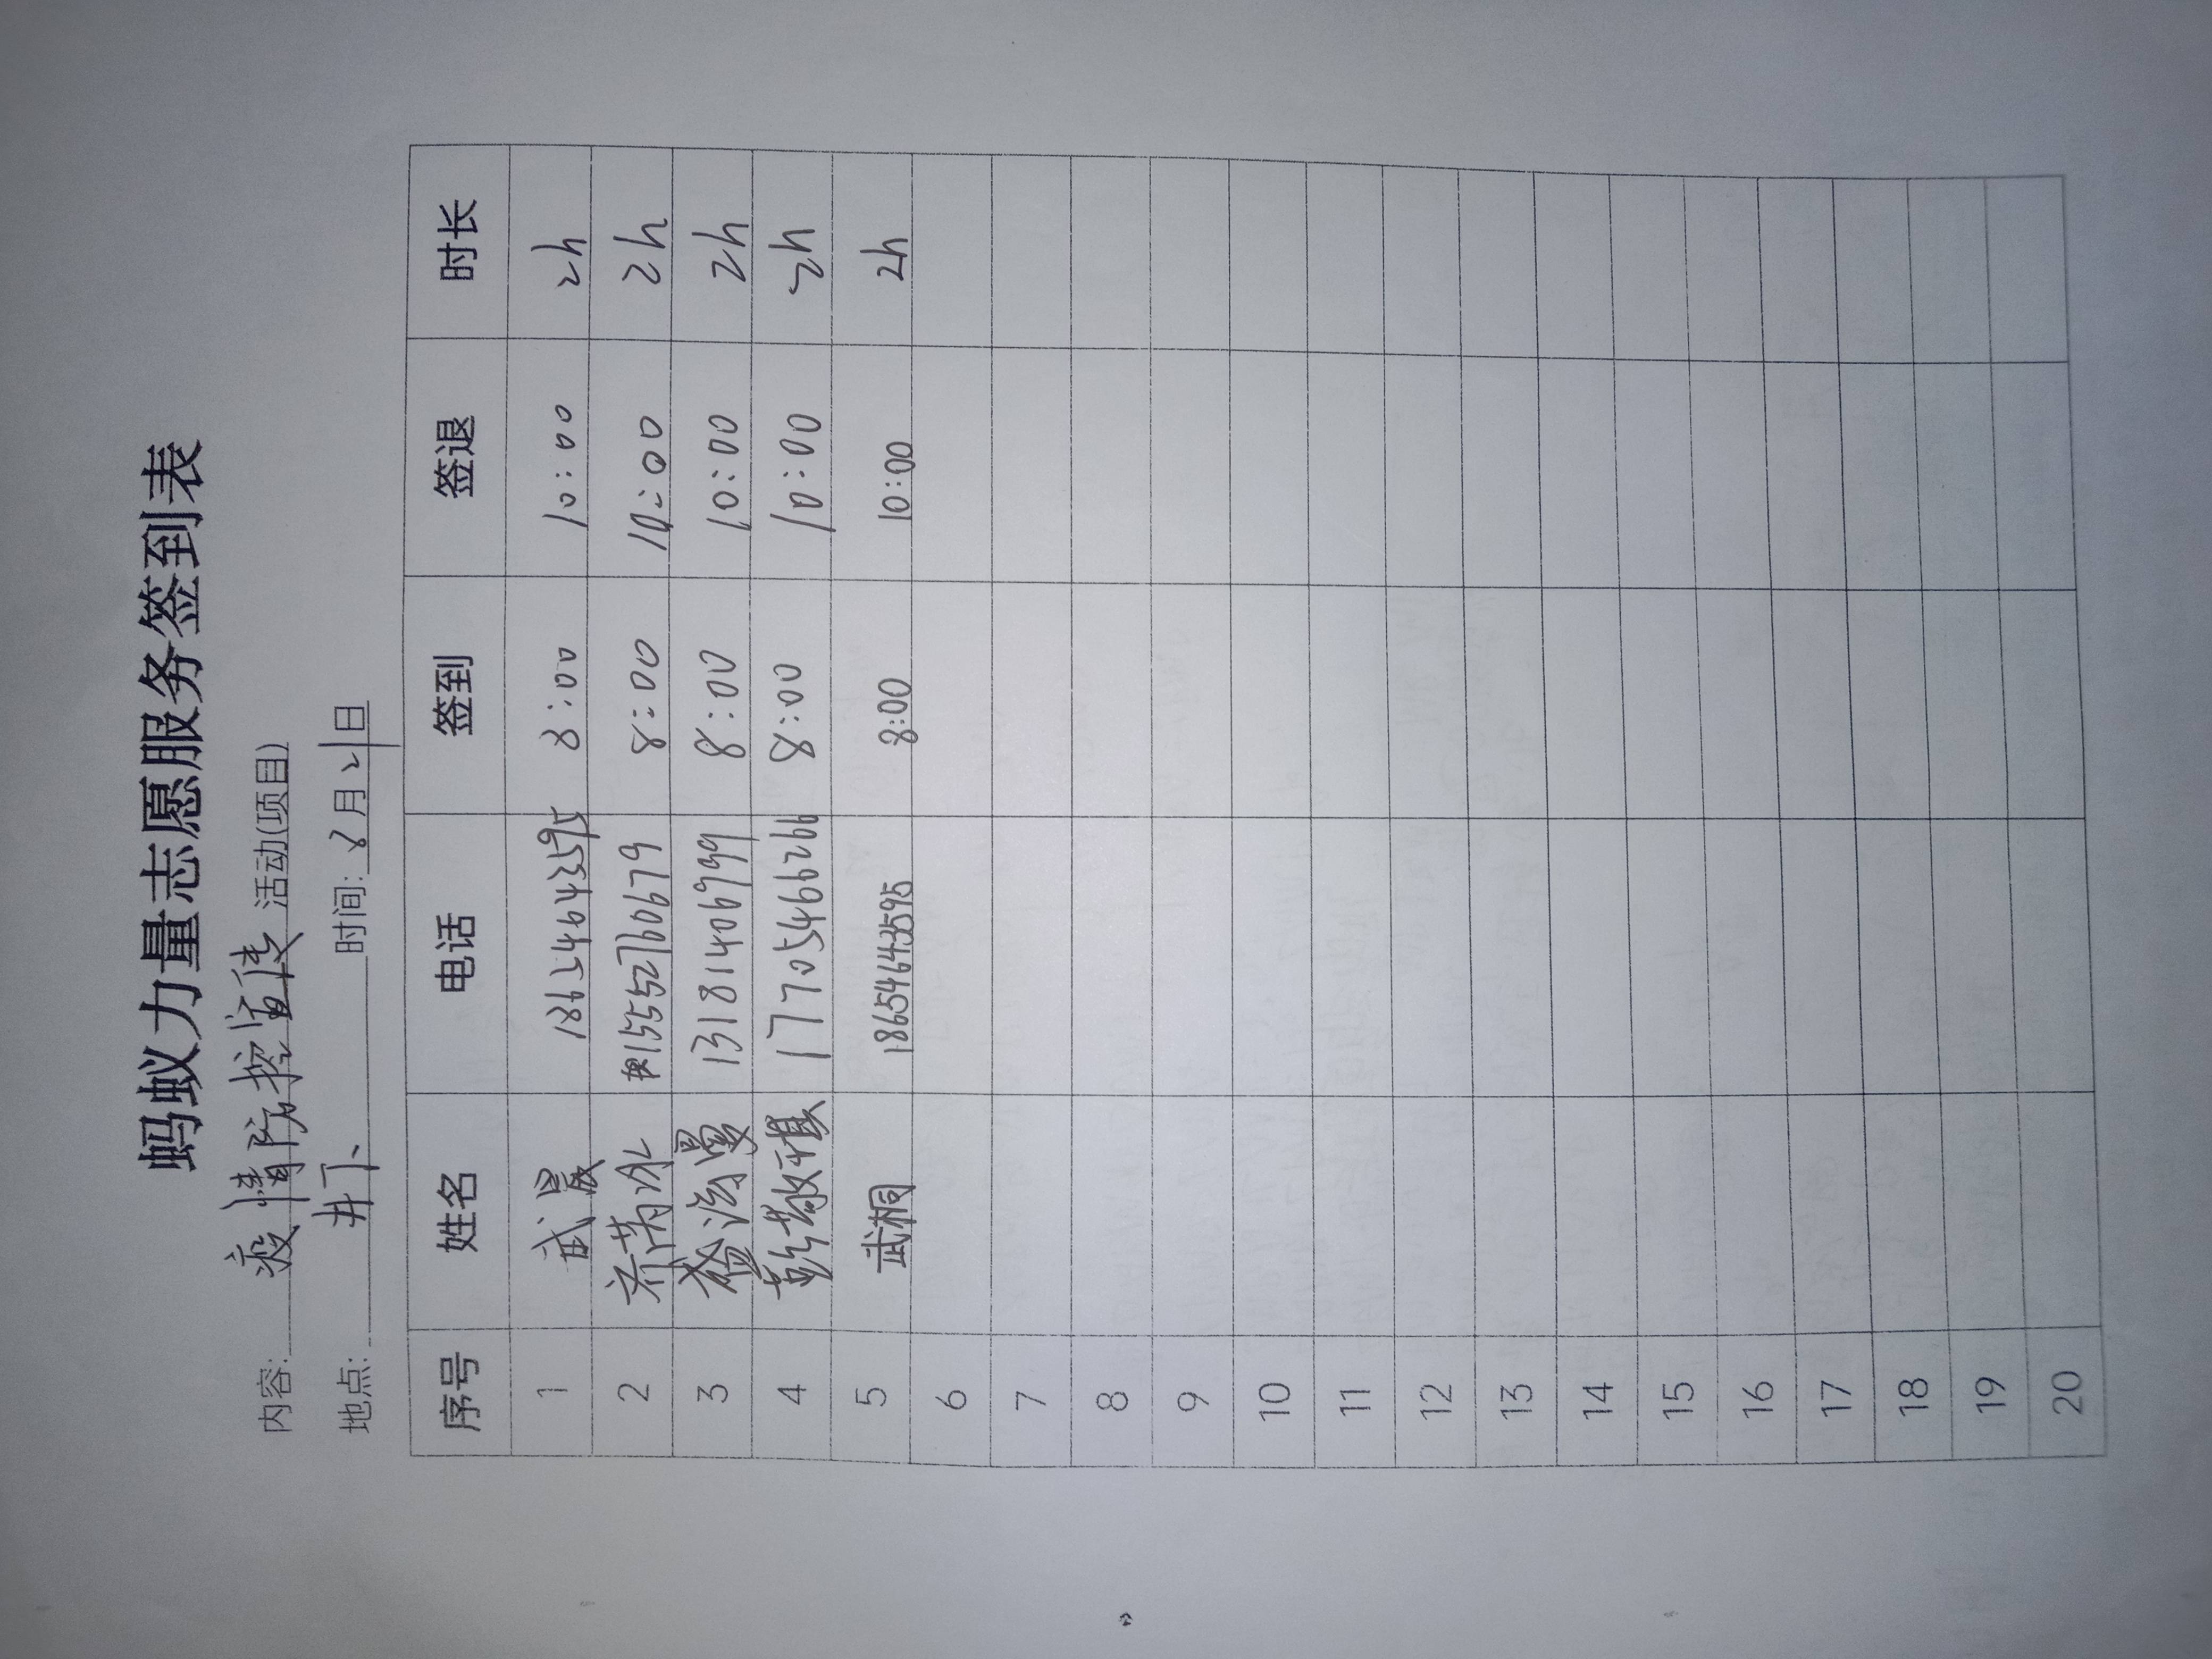 蚂蚁力量志愿服务签到表
内容: 疫情防控宣传 活动(项目)
地点: 井下 时间: 8月21日
序号 姓名 电话 签到 签退 时长
1 武晸 18654643595 8:00 10:00 2h
2 乔荣冰 15552760679 8:00 10:00 2h
3 13181406999 8:00 10:00 2h
4 彭敬祺 17705466266 8:00 10:00 2h
5 武桐 18654643595 8:00 10:00 2h
6
7
8
9
10
11
12
13
14
15
16
17
18
19
20